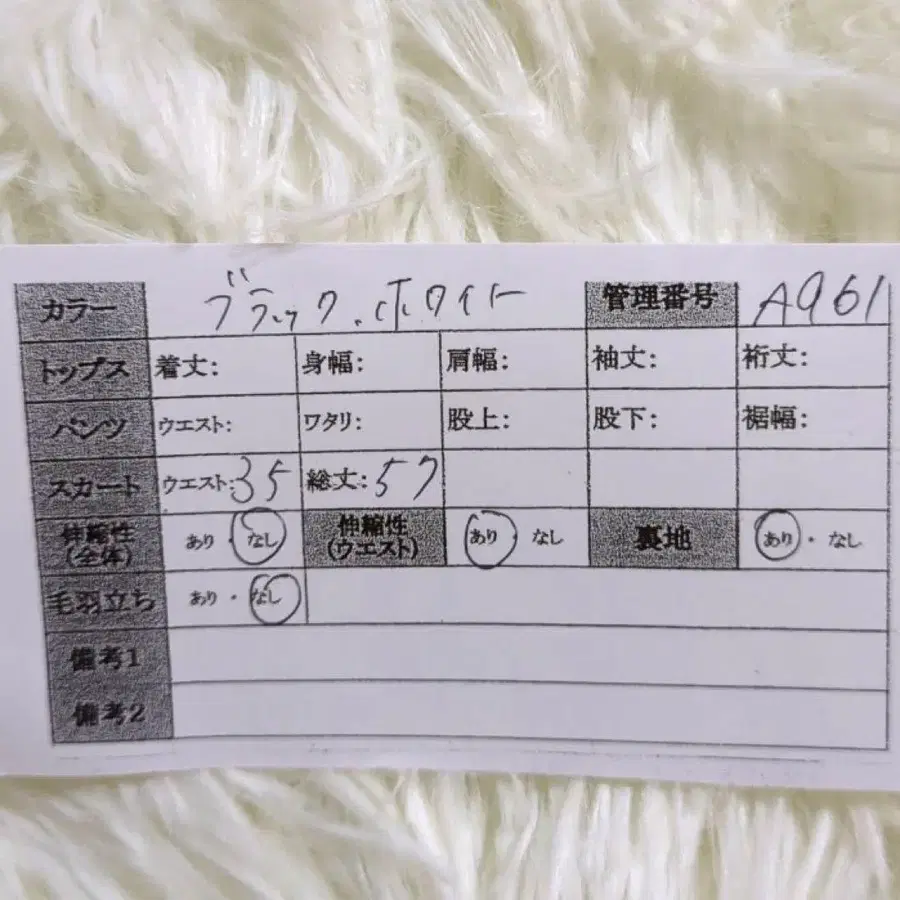 カラー ブラック.ホワイト 管理番号 A961
トップス 着丈: 身幅: 肩幅: 袖丈: 裄丈:
パンツ ウエスト: ワタリ: 股上: 股下: 裾幅:
スカート ウエスト:35 総丈:57
伸縮性(全体) あり・なし 伸縮性(ウエスト) あり・なし 裏地 あり・なし
毛羽立ち あり・なし
備考1
備考2